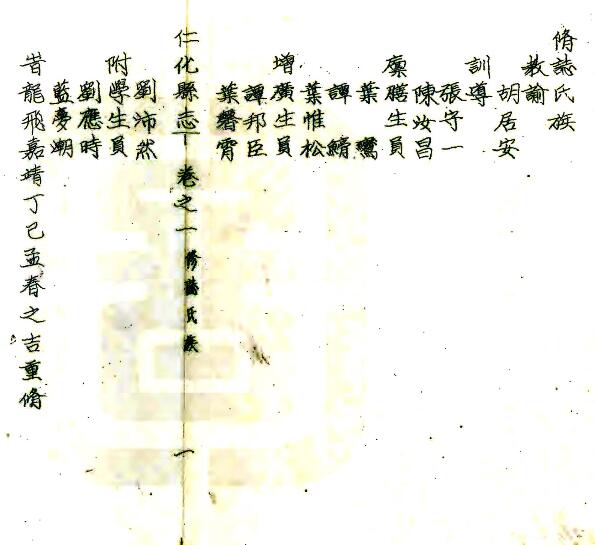 脩誌氏族
教諭
胡居安
訓導
張守一
陳汝昌
廩膳生員
葉鸞
譚
葉惟松
增廣生員
譚邦臣
葉馨霄
仁化縣志 卷之一 修誌氏族 一
劉沛然
附學生員
劉應時
藍夢潮
旹龍飛嘉靖丁巳孟春之吉重脩